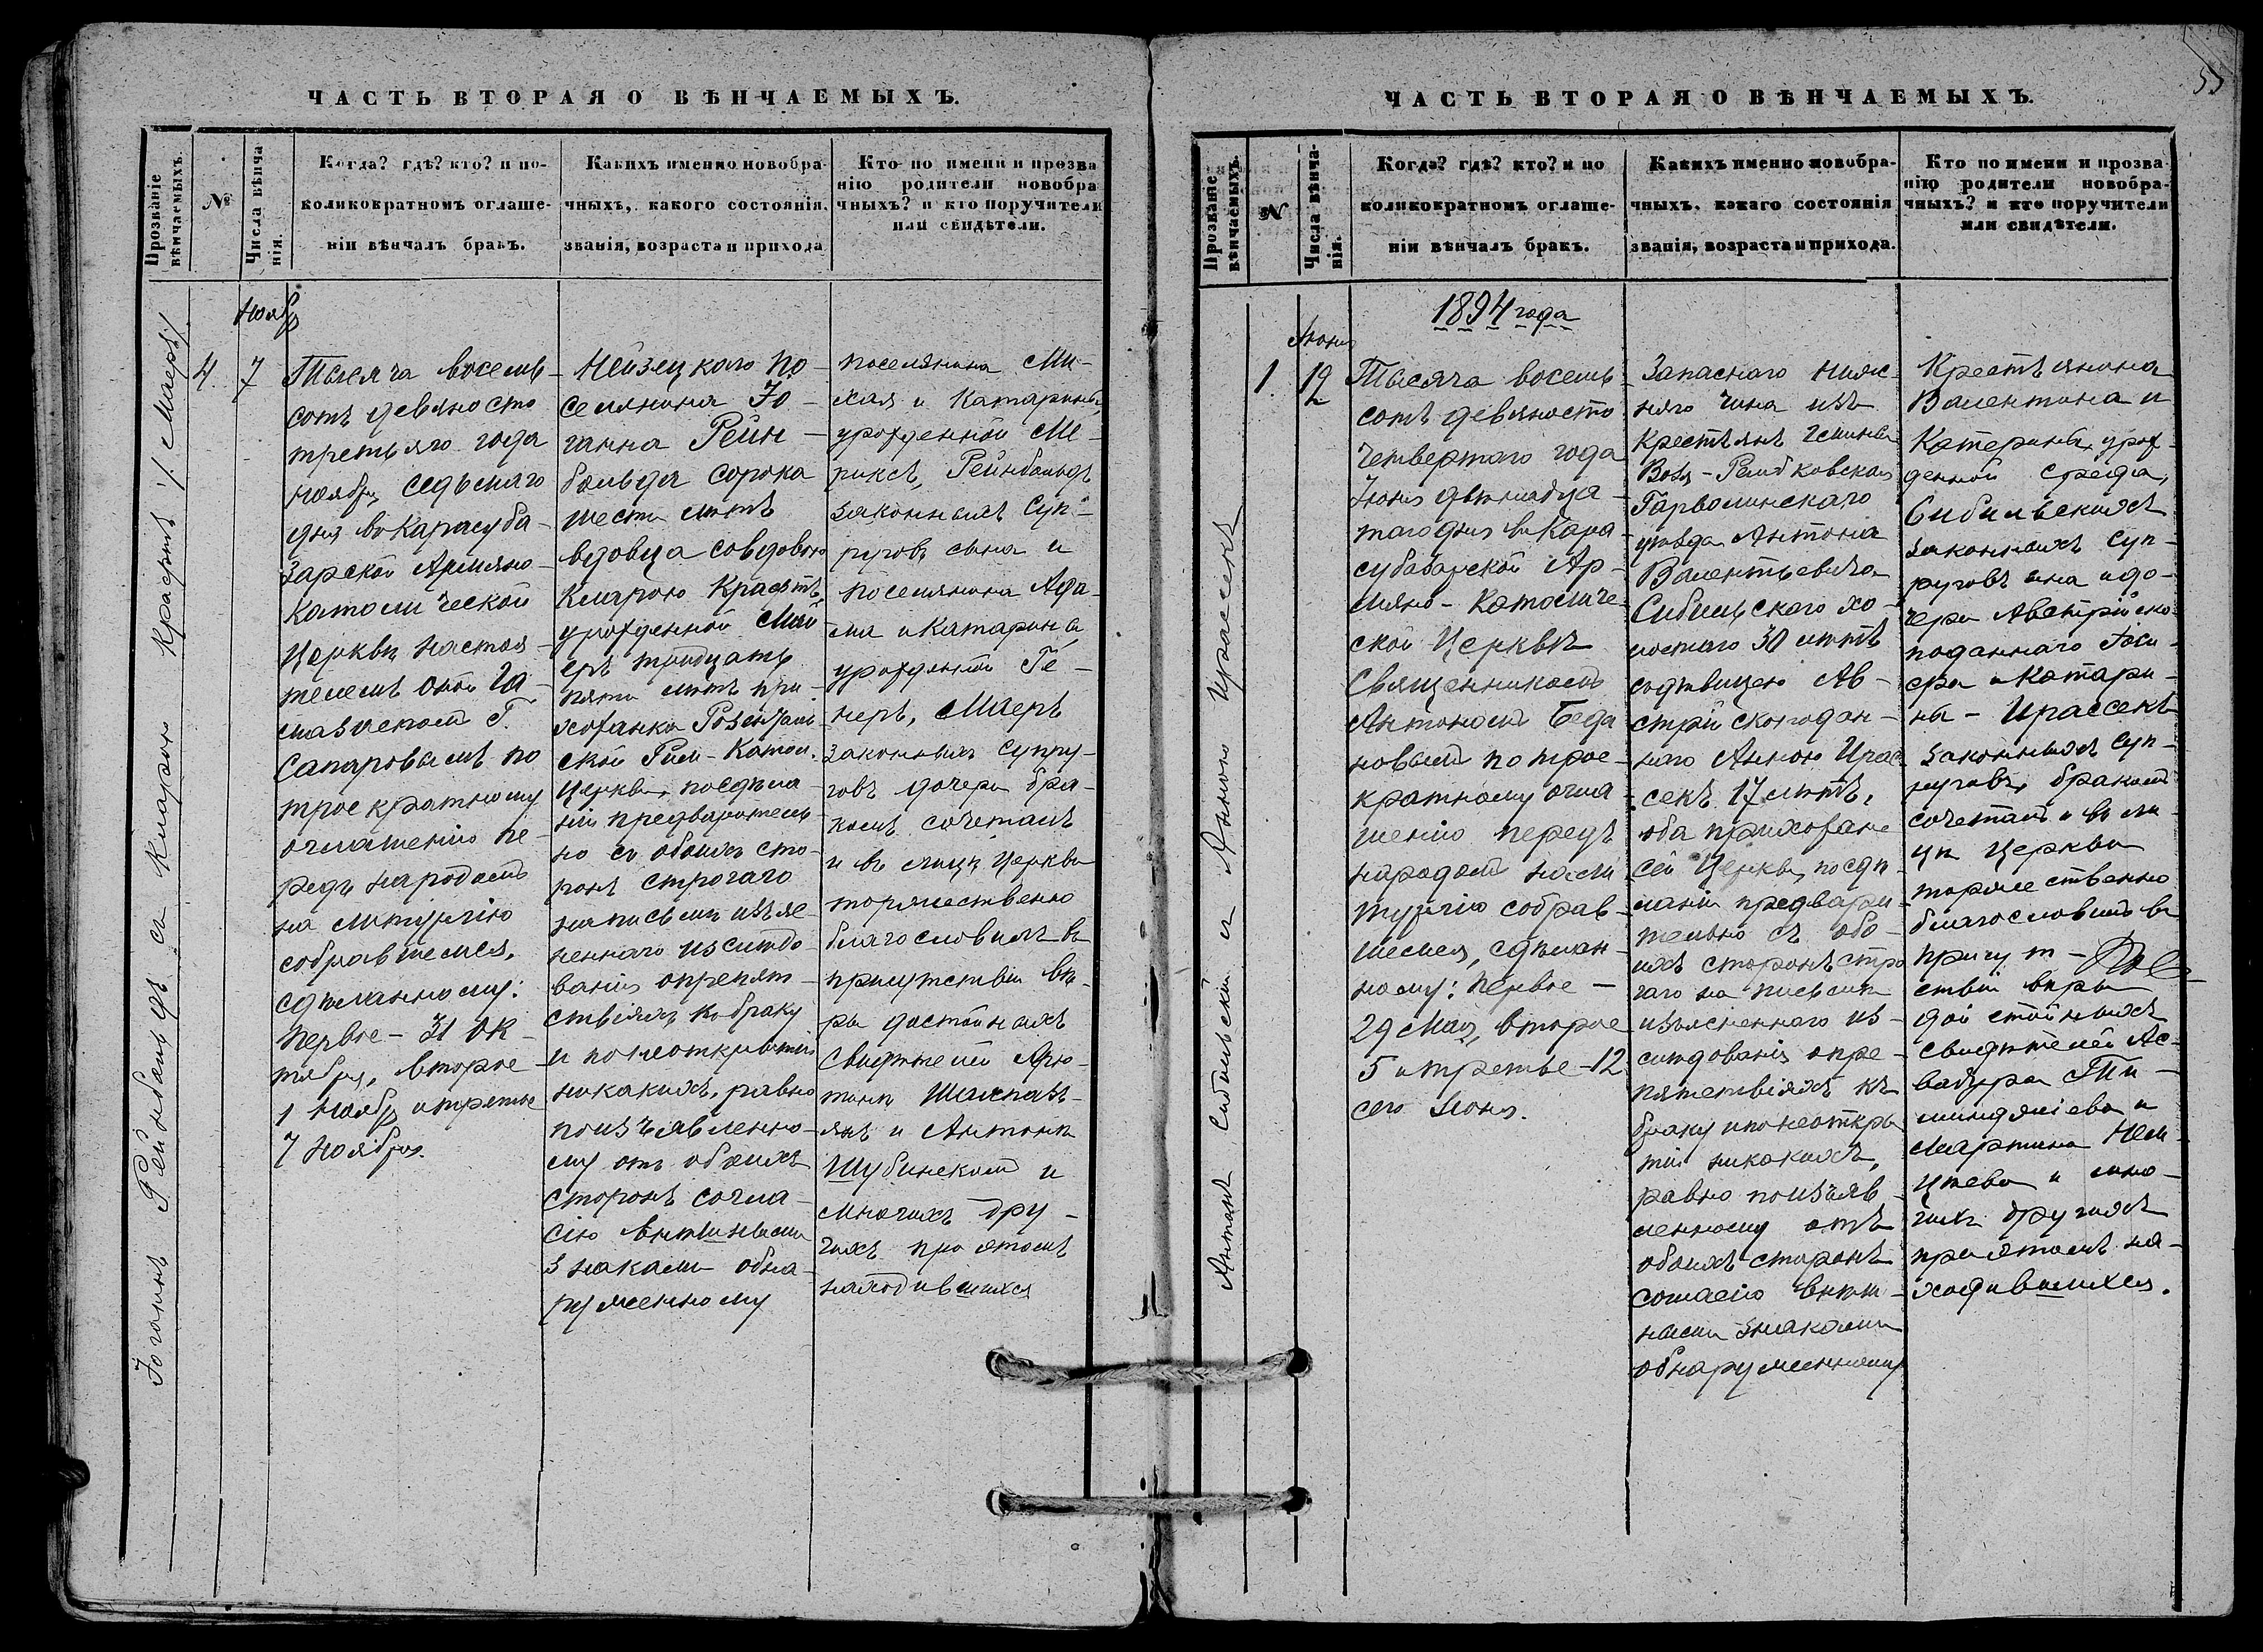 ЧАСТЬ ВТОРАЯ О ВѢНЧАЕМЫХЪ.
Прозваніе вѣнчаемыхъ.
№
Числа вѣнчанія.
Когда? гдѣ? кто? и по-
коликократномъ оглаше-
ніи вѣнчалъ бракъ.
Какихъ именно новобра-
чныхъ, какого состоянія,
званія, возраста и прихода
Кто по имени и прозва
нію родители новобра
чныхъ? и кто поручители
или свидѣтели.
Іоганнъ Рейнбольдъ съ Кларою Крафтъ /: Маеръ :/
4
Ноябр
7
Тысяча восемь
сотъ девяносто
третьяго года
Ноября седьмаго
дня въ Карасуба-
зарской Армяно-
католической
Церкви настоя-
телемъ оной
Г.
Сапаровымъ по
троекратному
оглашенію пе-
редъ народомъ
на литургію
собравшемся,
сдѣланному:
Первое - 31 ок-
тября, второе -
1 Ноября и третье
7 Ноября.
Нейзацкого По-
селянина Іо-
ганна Рейн-
больда сорока
шести лѣтъ
вдовца со вдовою
Кларою Крафтъ,
урожденной Май-
еръ тридцать
пяти лѣтъ при-
хожанка Розенталь
ской Рим-Катол.
Церкви, по сдѣла-
ніи предваритель-
но съ обоихъ сто-
ронъ строгаго
на письмѣ изъяс-
неннаго изслѣдо-
ванія о препят-
ствіяхъ къ браку
и по неоткрытіи
никакихъ, равно
по изъявленно-
му отъ обоихъ
сторонъ согла-
сію внѣшними
знаками обна-
руженному
поселянина Ми-
хаила и Катарины,
урожденной Ме-
риксъ, Рейнбольдъ
законныхъ суп-
руговъ сына и
поселянина Ада-
ма и Катарины
урожденной Ге-
неръ, Маеръ
законныхъ супру-
говъ дочери бра-
комъ сочеталъ
и въ лицѣ Церкви
торжественно
благословилъ въ
присутствіи вѣ-
ры достойныхъ
Свидѣтелей
и Антона
Шубинскаго и
многихъ дру-
гихъ при этомъ
находившихся
ЧАСТЬ ВТОРАЯ О ВѢНЧАЕМЫХЪ.
55
Прозваніе вѣнчаемыхъ.
№
Числа вѣнчанія.
Когда? гдѣ? кто? и по
коликократномъ оглаше-
ніи вѣнчалъ бракъ.
Какихъ именно новобра-
чныхъ, какаго состоянія
званія, возраста и прихода.
Кто по имени и прозва-
нію родители новобра-
чныхъ? и кто поручители
или свидѣтели.
Антонъ Сибильскій и Анною Ирассекъ
1894 года
1.
Іюня
12
Тысяча восемь
сотъ девяносто
четвертаго года
Іюня двѣнадца-
таго дня въ Кара-
субазарской Ар-
мяно-Католиче-
ской Церквѣ
Священникомъ
Антономъ Беда
новымъ по трое-
кратному огла-
шенію передъ
народомъ на ли
тургію собрав-
шемся, сдѣлан-
ному: Первое -
29 Мая, второе
5 и третье - 12
сего Іюня.
Запаснаго ниж-
няго чина изъ
крестьянъ Гмины
Воля-Рембковской
Гарволинскаго
уѣзда Антонія
Валентьевича
Сибильскаго хо-
лостаго 30 лѣтъ
съ дѣвицею Ав-
стрійскоподан-
наго Анною Ирас
секъ 17 лѣтъ,
оба прихожане
сей Церкви, по сдѣ
ланіи предвари-
тельно съ обо-
ихъ сторонъ стро
гаго на письмѣ
изъясненнаго из-
слѣдованія о пре-
пятствіяхъ къ
браку и по неоткры
тіи никакихъ,
равно по изъяв-
ленному отъ
обоихъ сторонъ
согласію внѣш-
ными знаками
обнаруженному
Крестьянина
Валентина и
Катерины, урож-
денной Среда,
Сибильскихъ
законныхъ суп-
руговъ сына и до-
чери Австрійско-
поданнаго Іоси-
фа и Катари-
ны - Ирассекъ
законныхъ суп-
руговъ, бракомъ
сочеталъ и въ ли-
цѣ Церкви
торжественно
благословилъ въ
присут-
ствіи вѣры
достойныхъ
свидѣтелей Ас-
вадура
и
Мартина
и мно-
гихъ другихъ
при этомъ на-
ходившихся.